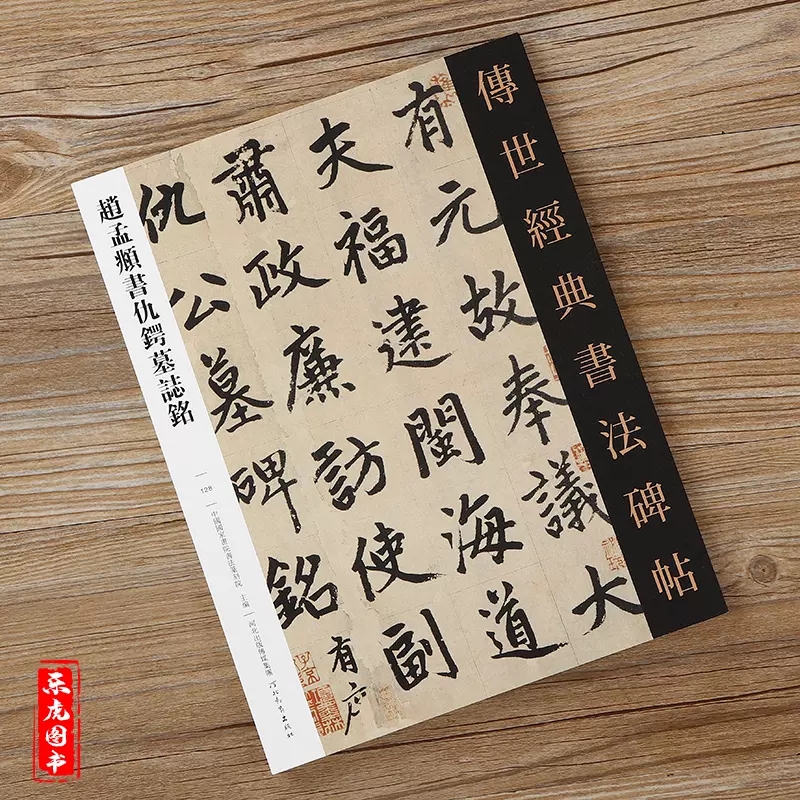 傳世經典書法碑帖
有元故奉議大
夫福建閩海道
肅政廉訪使副
仇公墓碑銘有序
趙孟頫書仇鍔墓誌銘
128
中國國家畫院書法篆刻院 主編
河北出版傳媒集團 河北教育出版社
乐虎图书